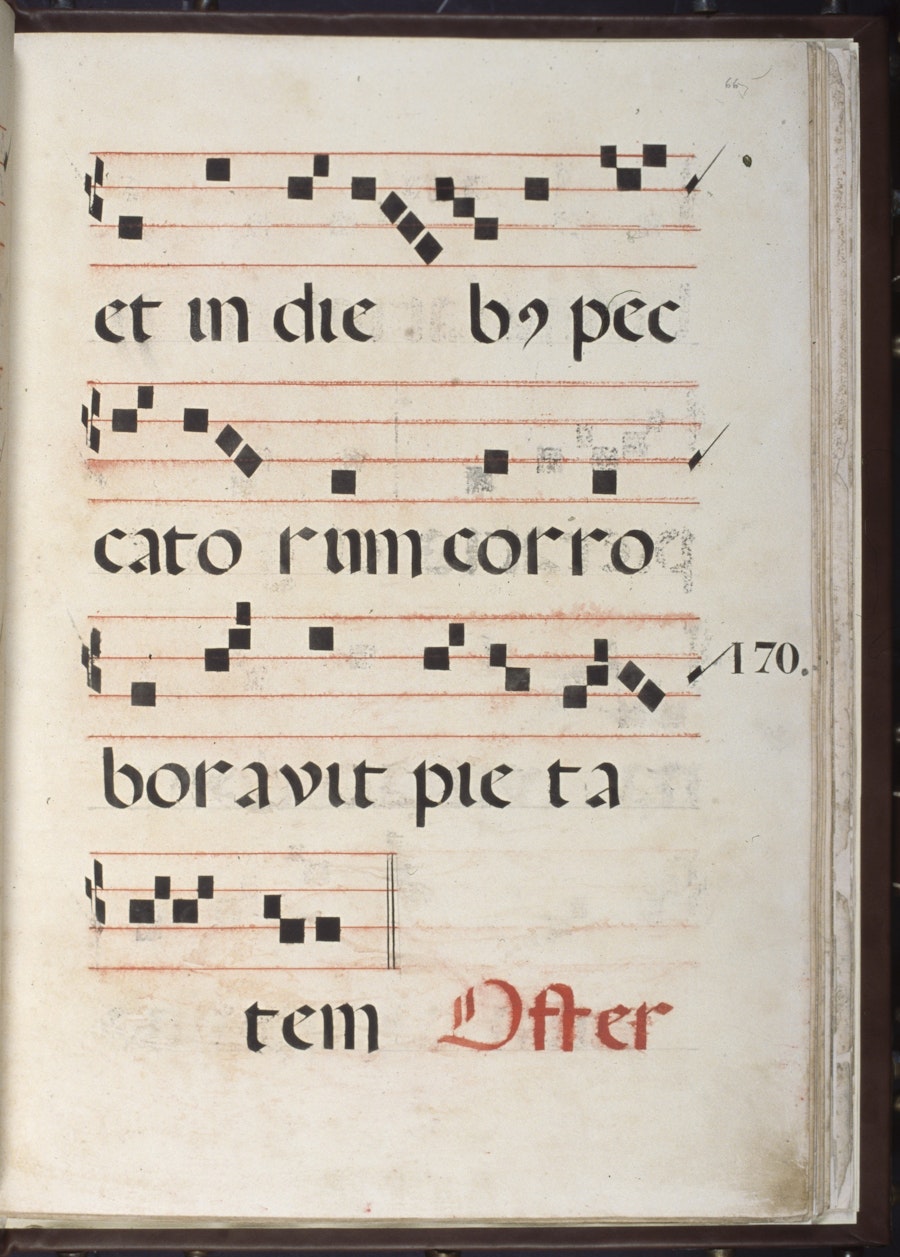 66
et in die bꝰ pec
cato rum corro
170.
boravit pie ta
tem Offer